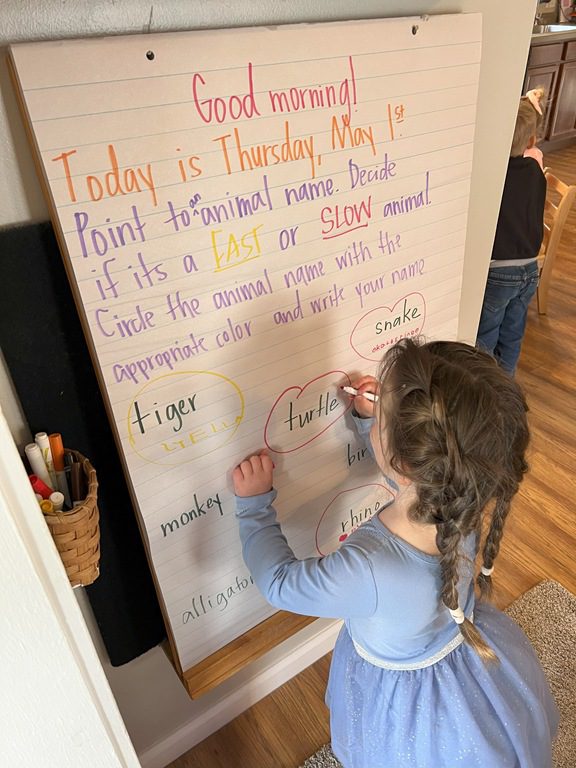 Good morning!
Today is Thursday, May 1st.
Point to an animal name. Decide
if its a FAST or SLOW animal.
Circle the animal name with the
appropriate color and write your name
snake
tiger
turtle
monkey
rhino
alligator